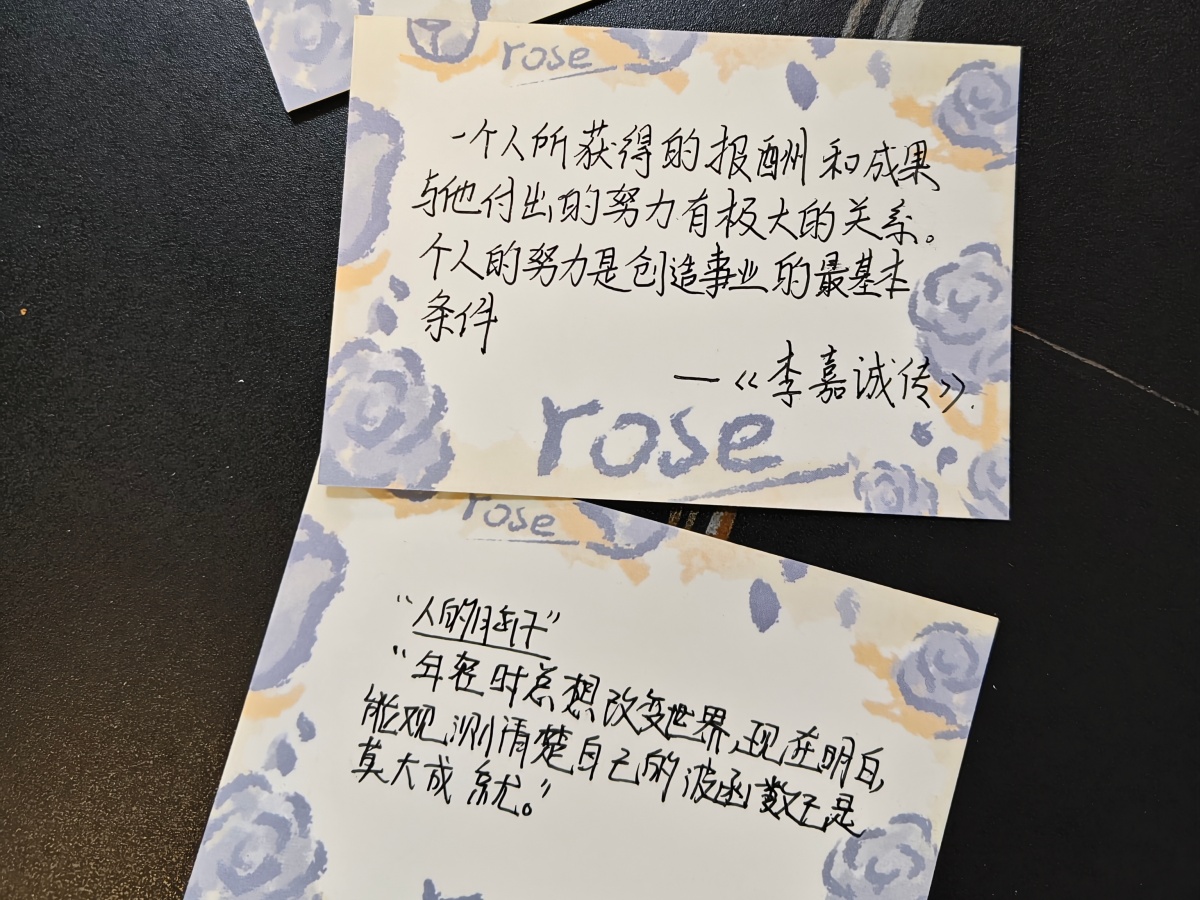 rose
一个人所获得的报酬和成果
与他付出的努力有极大的关系。
个人的努力是创造事业的最基本
条件
—《李嘉诚传》.
rose
rose
"人的
"年轻时总想改变世界,现在明白,
能观测清楚自己的波函数已是
莫大成就。"